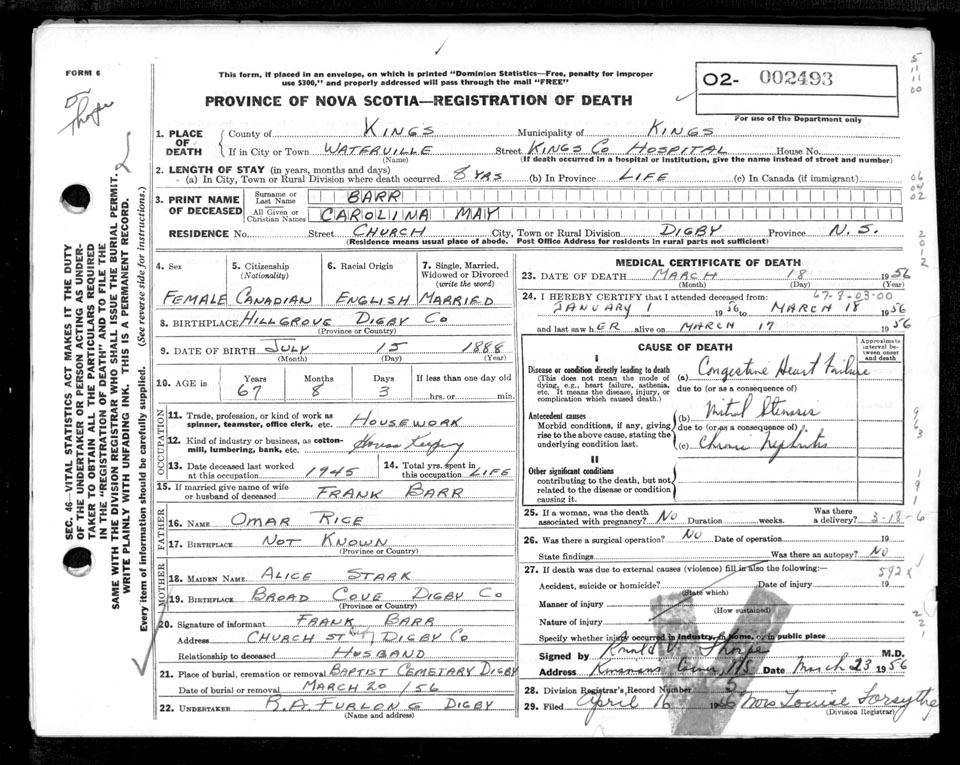 FORM 6
This form, if placed in an envelope, on which is printed "Dominion Statistics—Free, penalty for improper
use $300," and properly addressed will pass through the mail "FREE"
02- 002493
For use of the Department only
PROVINCE OF NOVA SCOTIA—REGISTRATION OF DEATH
Dr Thorpe
SEC. 46—VITAL STATISTICS ACT MAKES IT THE DUTY
OF THE UNDERTAKER OR PERSON ACTING AS UNDER-
TAKER TO OBTAIN ALL THE PARTICULARS REQUIRED
IN THE "REGISTRATION OF DEATH" AND TO FILE THE
SAME WITH THE DIVISION REGISTRAR WHO SHALL ISSUE THE BURIAL PERMIT.
WRITE PLAINLY WITH UNFADING INK. THIS IS A PERMANENT RECORD.
Every item of information should be carefully supplied. (See reverse side for instructions.)
1. PLACE OF DEATH
County of KINGS Municipality of KINGS
If in City or Town WATERVILLE Street KINGS CO HOSPITAL House No.
(Name) (If death occurred in a hospital or institution, give the name instead of street and number)
2. LENGTH OF STAY (in years, months and days)
(a) In City, Town or Rural Division where death occurred 8 YRS (b) In Province LIFE (c) In Canada (if immigrant)
3. PRINT NAME OF DECEASED
Surname or Last Name BARR
All Given or Christian Names CAROLINA MAY
RESIDENCE No. Street CHURCH City, Town or Rural Division DIGBY Province N.S.
(Residence means usual place of abode. Post Office Address for residents in rural parts not sufficient)
4. Sex FEMALE
5. Citizenship (Nationality) CANADIAN
6. Racial Origin ENGLISH
7. Single, Married, Widowed or Divorced (write the word) MARRIED
8. BIRTHPLACE HILLGROVE DIGBY CO
(Province or Country)
9. DATE OF BIRTH JULY 15 1888
(Month) (Day) (Year)
10. AGE in Years Months Days If less than one day old
67 8 3 hrs. or min.
OCCUPATION
11. Trade, profession, or kind of work as
spinner, teamster, office clerk, etc. HOUSEWORK
12. Kind of industry or business, as cotton-
mill, lumbering, bank, etc. House Keeping
13. Date deceased last worked at this occupation 1945
14. Total yrs. spent in this occupation LIFE
15. If married give name of wife or husband of deceased FRANK BARR
FATHER
16. NAME OMAR RICE
17. BIRTHPLACE NOT KNOWN
(Province or Country)
MOTHER
18. MAIDEN NAME ALICE STARK
19. BIRTHPLACE BROAD COVE DIGBY CO
(Province or Country)
20. Signature of informant FRANK BARR
Address CHURCH ST DIGBY CO
Relationship to deceased HUSBAND
21. Place of burial, cremation or removal BAPTIST CEMETARY DIGBY
Date of burial or removal MARCH 20/56
22. UNDERTAKER R.A. FURLONG DIGBY
(Name and address)
MEDICAL CERTIFICATE OF DEATH
23. DATE OF DEATH MARCH 18 1956
(Month) (Day) (Year)
24. I HEREBY CERTIFY that I attended deceased from: 67-8-03-00
JANUARY 1 1956 to MARCH 18 1956
and last saw hER alive on MARCH 17 1956
CAUSE OF DEATH
Approximate interval between onset and death
I
Disease or condition directly leading to death
(This does not mean the mode of
dying, e.g., heart failure, asthenia,
etc. It means the disease, injury, or
complication which caused death.)
(a) Congestive Heart Failure
due to (or as a consequence of)
Antecedent causes
Morbid conditions, if any, giving
rise to the above cause, stating the
underlying condition last.
(b) Mitral Stenosis
due to (or as a consequence of)
(c) Chronic Nephritis
II
Other significant conditions
contributing to the death, but not
related to the disease or condition
causing it.
25. If a woman, was the death associated with pregnancy? NO Duration weeks. Was there a delivery? 3-18-6
26. Was there a surgical operation? NO Date of operation 19
State findings Was there an autopsy? NO
27. If death was due to external causes (violence) fill in also the following:— 592x
Accident, suicide or homicide? Date of injury 19
(State which)
Manner of injury
(How sustained)
Nature of injury
Specify whether injury occurred in industry, in home, or in public place
Signed by Ronald V. Thorpe M.D.
Address NS Date March 23 1956
28. Division Registrar's Record Number 5
29. Filed April 16 1956 Mrs Louise Forsythe
(Division Registrar)